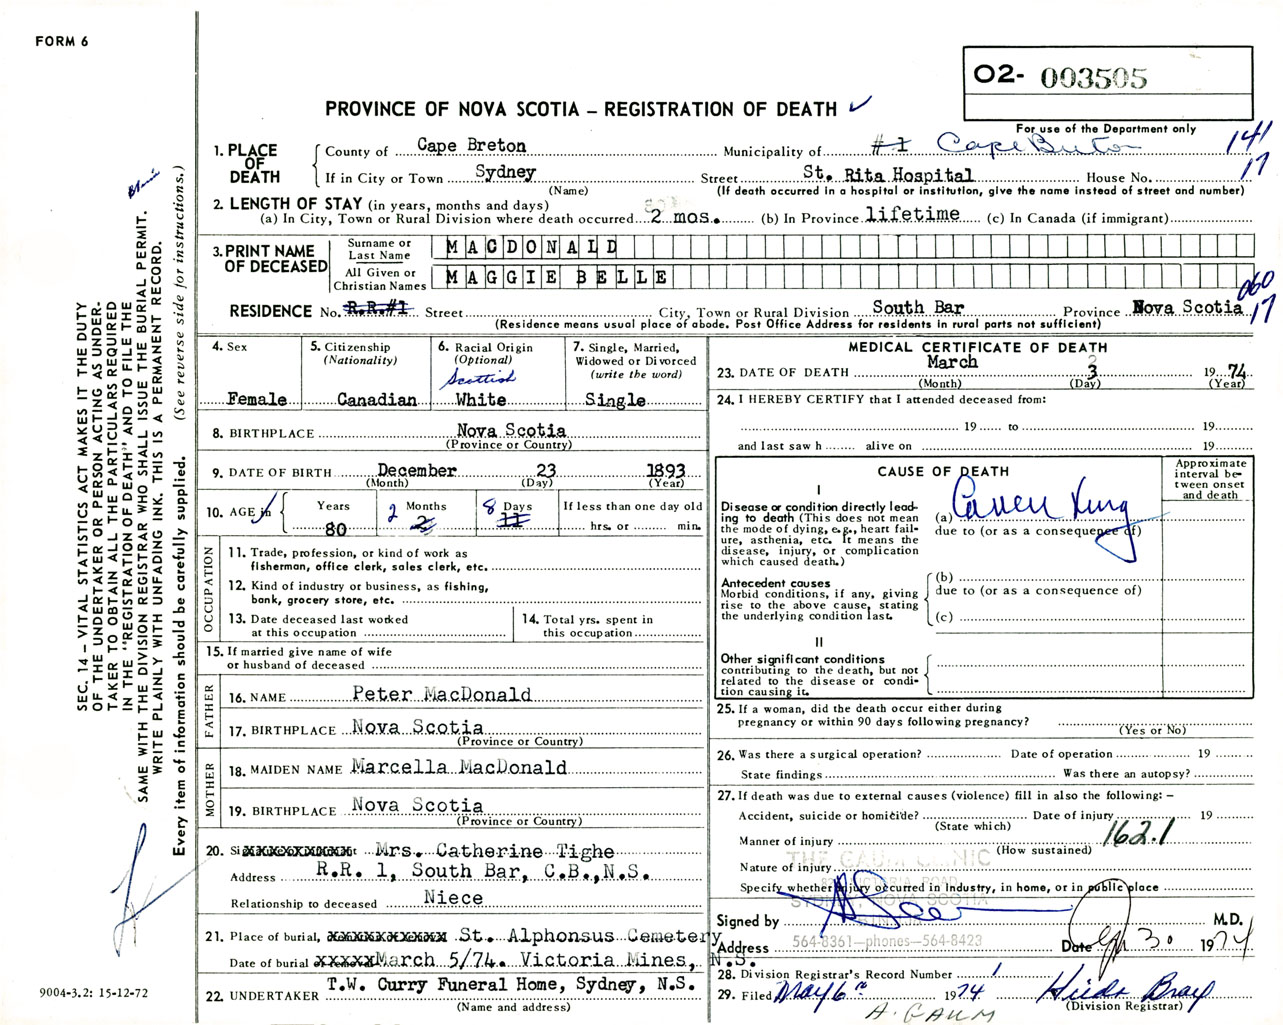 FORM 6
O2- 003505
PROVINCE OF NOVA SCOTIA – REGISTRATION OF DEATH ✓
For use of the Department only
1. PLACE OF DEATH
County of Cape Breton Municipality of #1 Cape Breton 141
If in City or Town Sydney Street St. Rita Hospital House No. 17
(Name) (If death occurred in a hospital or institution, give the name instead of street and number)
2. LENGTH OF STAY (in years, months and days)
(a) In City, Town or Rural Division where death occurred 2 mos. (b) In Province lifetime (c) In Canada (if immigrant)
3. PRINT NAME OF DECEASED
Surname or Last Name MACDONALD
All Given or Christian Names MAGGIE BELLE
060
RESIDENCE No. R.R.#1 Street City, Town or Rural Division South Bar Province Nova Scotia 17
(Residence means usual place of abode. Post Office Address for residents in rural parts not sufficient)
4. Sex
Female
5. Citizenship
(Nationality)
Canadian
6. Racial Origin
(Optional)
Scottish
White
7. Single, Married,
Widowed or Divorced
(write the word)
Single
8. BIRTHPLACE Nova Scotia
(Province or Country)
9. DATE OF BIRTH December 23 1893
(Month) (Day) (Year)
10. AGE in Years 80 2 Months 8 Days 11 If less than one day old
hrs. or min.
OCCUPATION
11. Trade, profession, or kind of work as
fisherman, office clerk, sales clerk, etc.
12. Kind of industry or business, as fishing,
bank, grocery store, etc.
13. Date deceased last worked
at this occupation
14. Total yrs. spent in
this occupation
15. If married give name of wife
or husband of deceased
FATHER
16. NAME Peter MacDonald
17. BIRTHPLACE Nova Scotia
(Province or Country)
MOTHER
18. MAIDEN NAME Marcella MacDonald
19. BIRTHPLACE Nova Scotia
(Province or Country)
20. Mrs. Catherine Tighe
Address R.R. 1, South Bar, C.B.,N.S.
Relationship to deceased Niece
21. Place of burial, St. Alphonsus Cemetery
Date of burial March 5/74. Victoria Mines, N.S.
22. UNDERTAKER T.W. Curry Funeral Home, Sydney, N.S.
(Name and address)
MEDICAL CERTIFICATE OF DEATH
23. DATE OF DEATH March 3 19 74
(Month) (Day) (Year)
24. I HEREBY CERTIFY that I attended deceased from:
19 to 19
and last saw h alive on 19
CAUSE OF DEATH
Approximate
interval be-
tween onset
and death
I
Disease or condition directly lead-
ing to death (This does not mean
the mode of dying, e.g., heart fail-
ure, asthenia, etc. It means the
disease, injury, or complication
which caused death.)
(a) Cancer Lung
due to (or as a consequence of)
Antecedent causes
Morbid conditions, if any, giving
rise to the above cause, stating
the underlying condition last.
(b)
due to (or as a consequence of)
(c)
II
Other significant conditions
contributing to the death, but not
related to the disease or condi-
tion causing it.
25. If a woman, did the death occur either during
pregnancy or within 90 days following pregnancy?
(Yes or No)
26. Was there a surgical operation? Date of operation 19
State findings Was there an autopsy?
27. If death was due to external causes (violence) fill in also the following: –
Accident, suicide or homicide? Date of injury 19
(State which)
Manner of injury 162.1
(How sustained)
THE GAUM CLINIC
Nature of injury
Specify whether injury occurred in Industry, in home, or in public place
SYDNEY, NOVA SCOTIA
Signed by M.D.
564-8361—phones—564-8423
Address Date 30 1974
28. Division Registrar's Record Number 1
29. Filed May 6th 1974 Hilda Bray
(Division Registrar)
A. GAUM
SEC. 14 – VITAL STATISTICS ACT MAKES IT THE DUTY
OF THE UNDERTAKER OR PERSON ACTING AS UNDER-
TAKER TO OBTAIN ALL THE PARTICULARS REQUIRED
IN THE "REGISTRATION OF DEATH" AND TO FILE THE
SAME WITH THE DIVISION REGISTRAR WHO SHALL ISSUE THE BURIAL PERMIT.
WRITE PLAINLY WITH UNFADING INK. THIS IS A PERMANENT RECORD.
Every item of information should be carefully supplied. (See reverse side for instructions.)
9004-3.2: 15-12-72